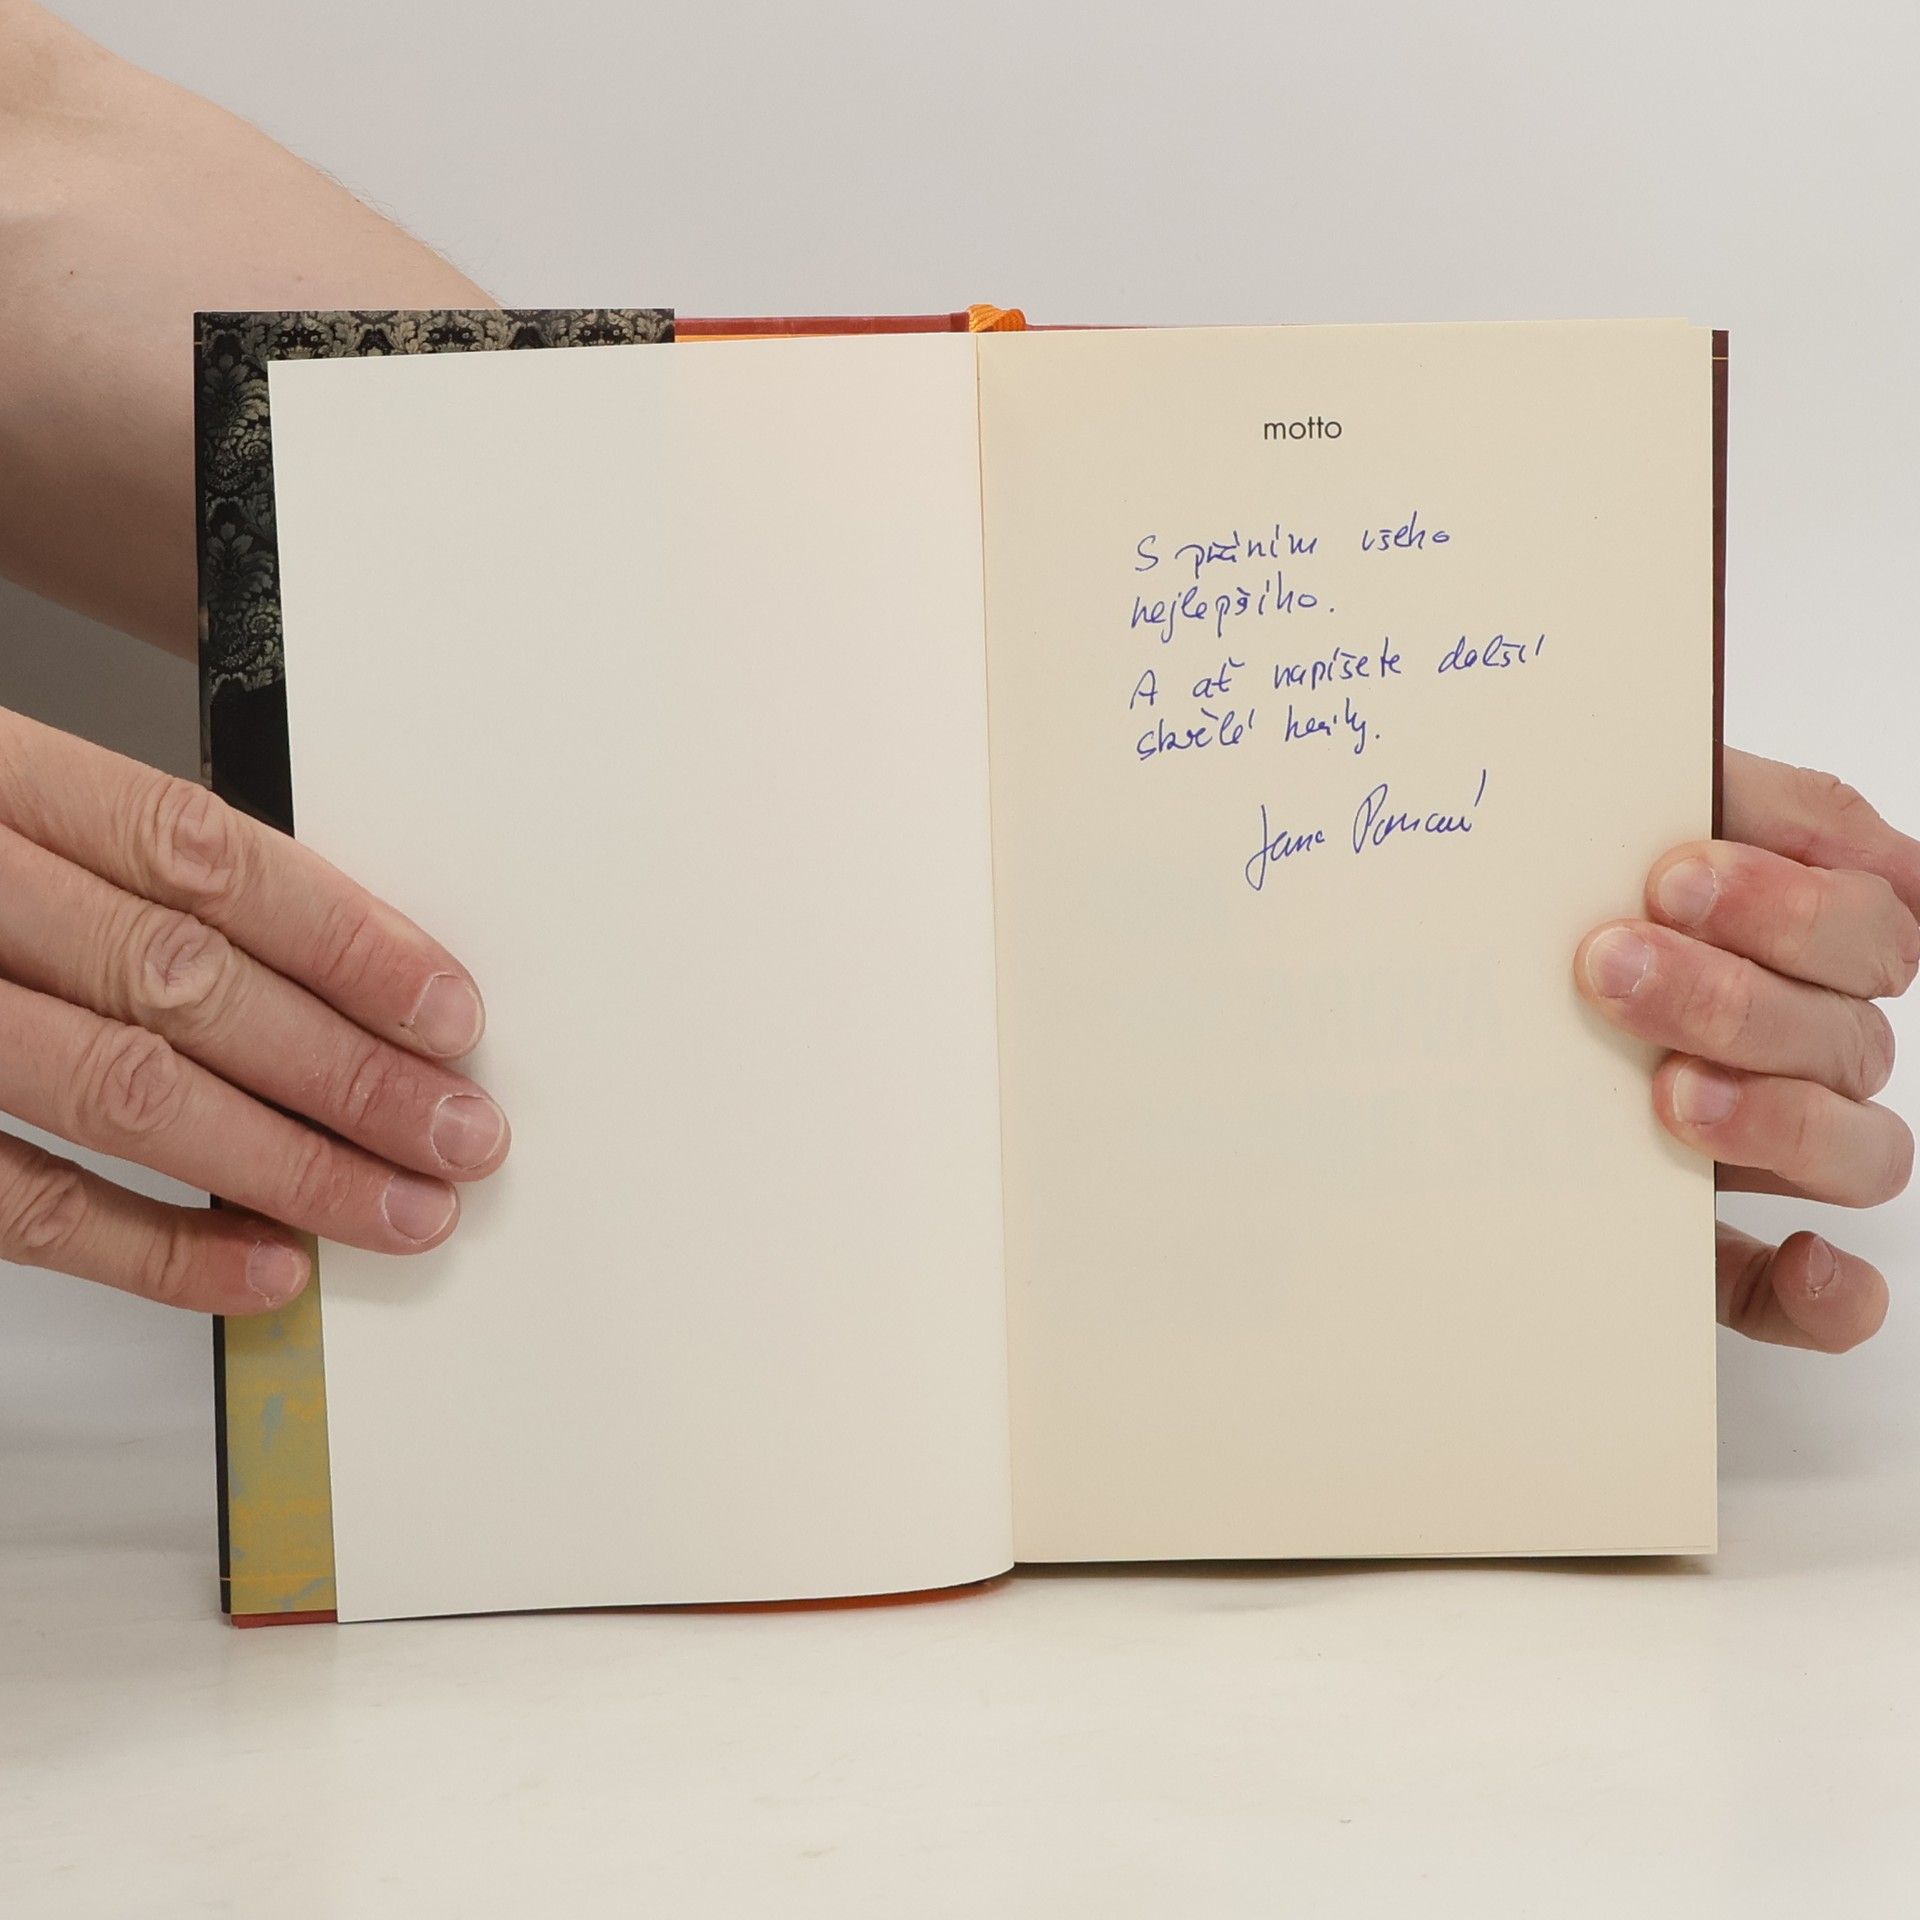 motto
S přáním všeho
nejlepšího.
A ať napíšete další
skvělé knihy.
Jana